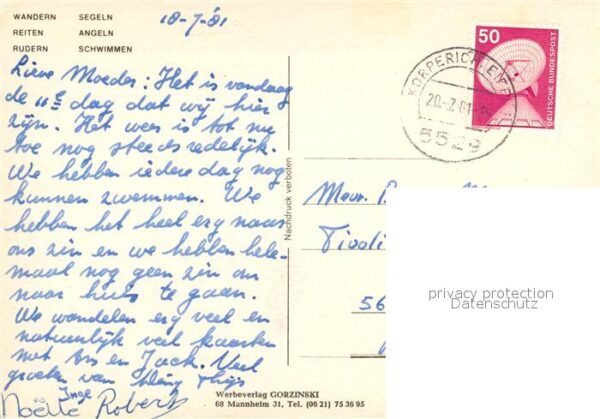 WANDERN SEGELN
REITEN ANGELN
RUDERN SCHWIMMEN
18-7-'81
Lieve Moeder: Het is vandaag
de 11e dag dat wij hier
zijn. Het weer is tot nu
toe nog steeds redelijk.
We hebben iedere dag nog
kunnen zwemmen. We
hebben het heel erg naar
ons zin en we hebben hele-
maal nog geen zin om
naar huis te gaan.
We wandelen erg veel en
natuurlijk veel kaarten
met en Jack. Veel
groeten van Thijs
Inge
Noëlle Robert
Nachdruck verboten
50
DEUTSCHE BUNDESPOST
KÖRPERICH, EIFEL
20.-7.81
5529
Mevr.
Tivoli
56
privacy protection
Datenschutz
Werbeverlag GORZINSKI
68 Mannheim 31, Tel. (06 21) 75 36 95